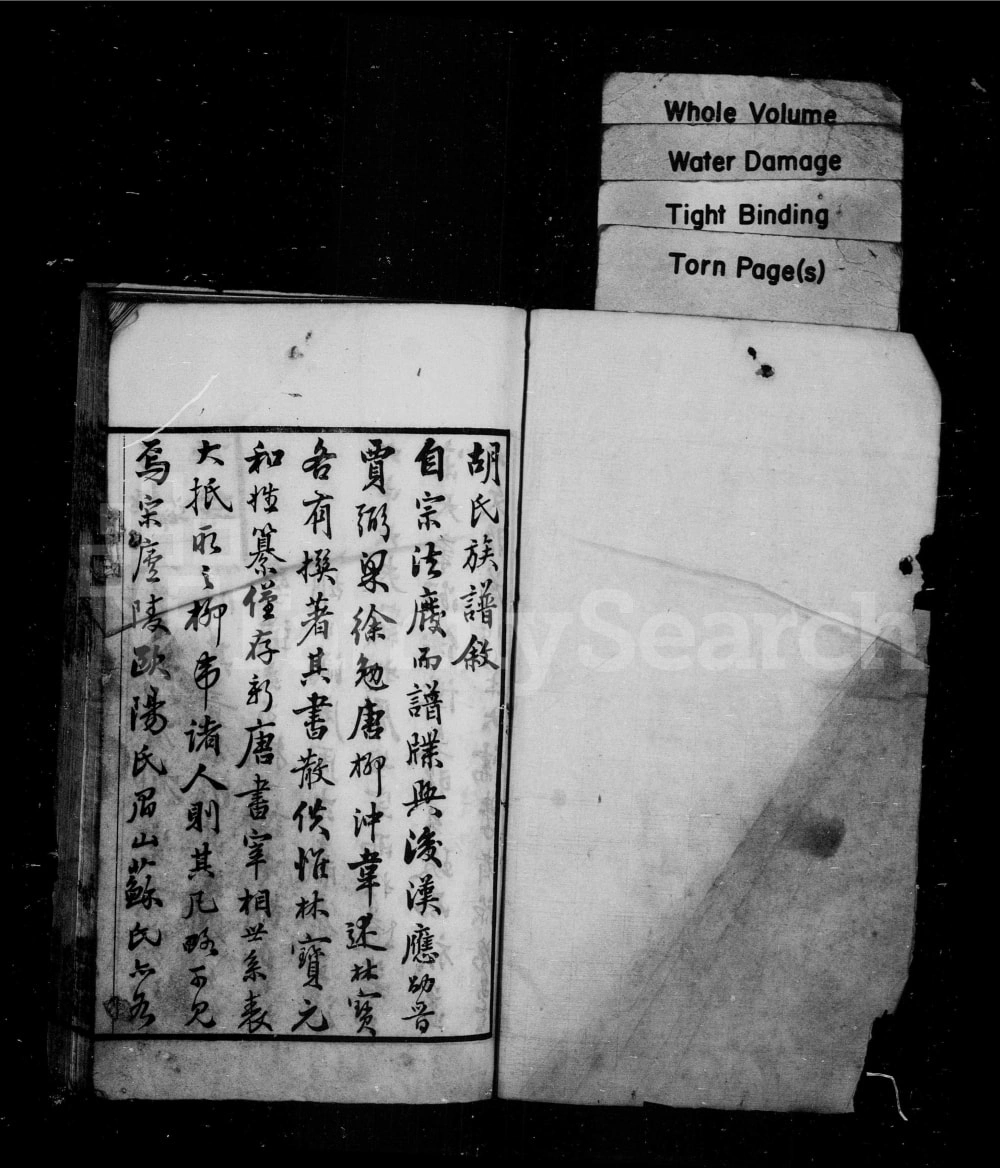 Whole Volume
Water Damage
Tight Binding
Torn Page(s)
胡氏族譜敘
自宗法廢而譜牒興後漢應劭晉
賈弼梁徐勉唐柳沖韋述林寶
各有撰著其書散佚惟林寶元
和姓纂僅存新唐書宰相世系表
大抵取之柳韋諸人則其凡略可見
焉宋廬陵歐陽氏眉山蘇氏亦各
FamilySearch